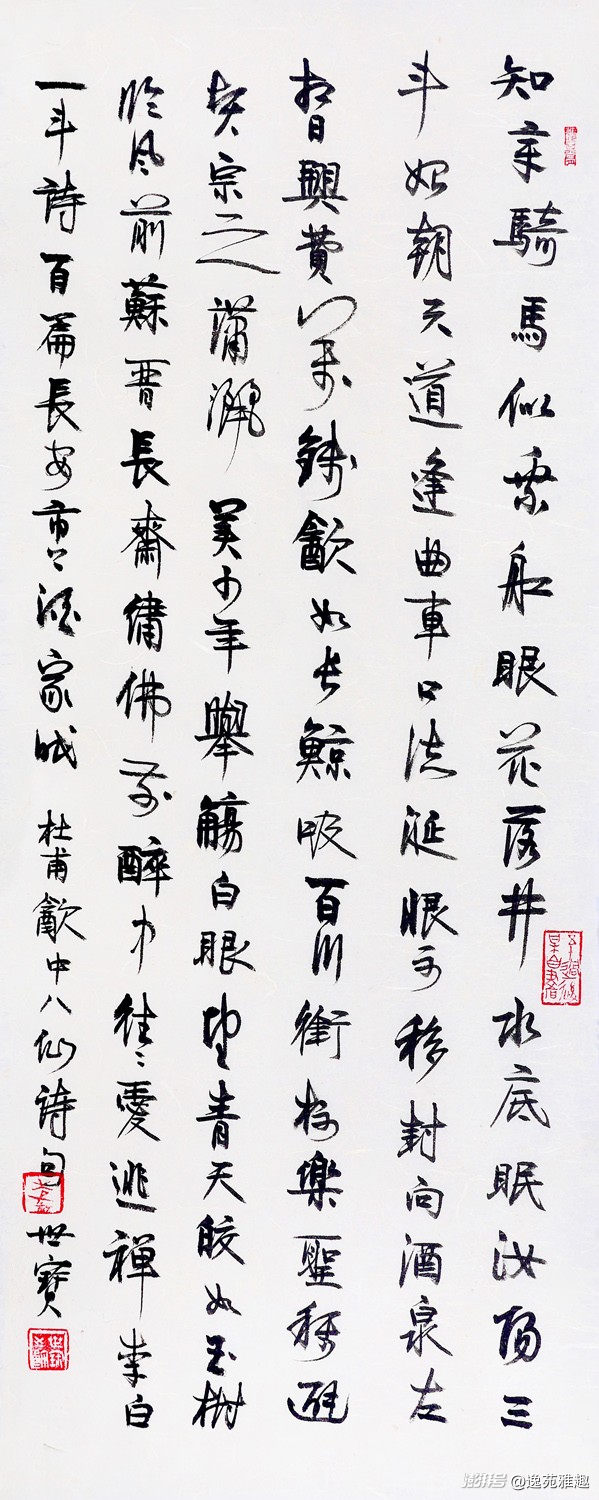 知章騎馬似乘船眼花落井水底眠汝陽三
斗始朝天道逢曲車口流涎恨不移封向酒泉左
相日興費萬錢飲如長鯨吸百川銜杯樂聖稱避
賢宗之瀟灑美少年舉觴白眼望青天皎如玉樹
臨風前蘇晉長齋繡佛前醉中往〻愛逃禪李白
一斗詩百篇長安市上酒家眠 杜甫飲中八仙詩句 世寶
澎湃号 @逸苑雅趣